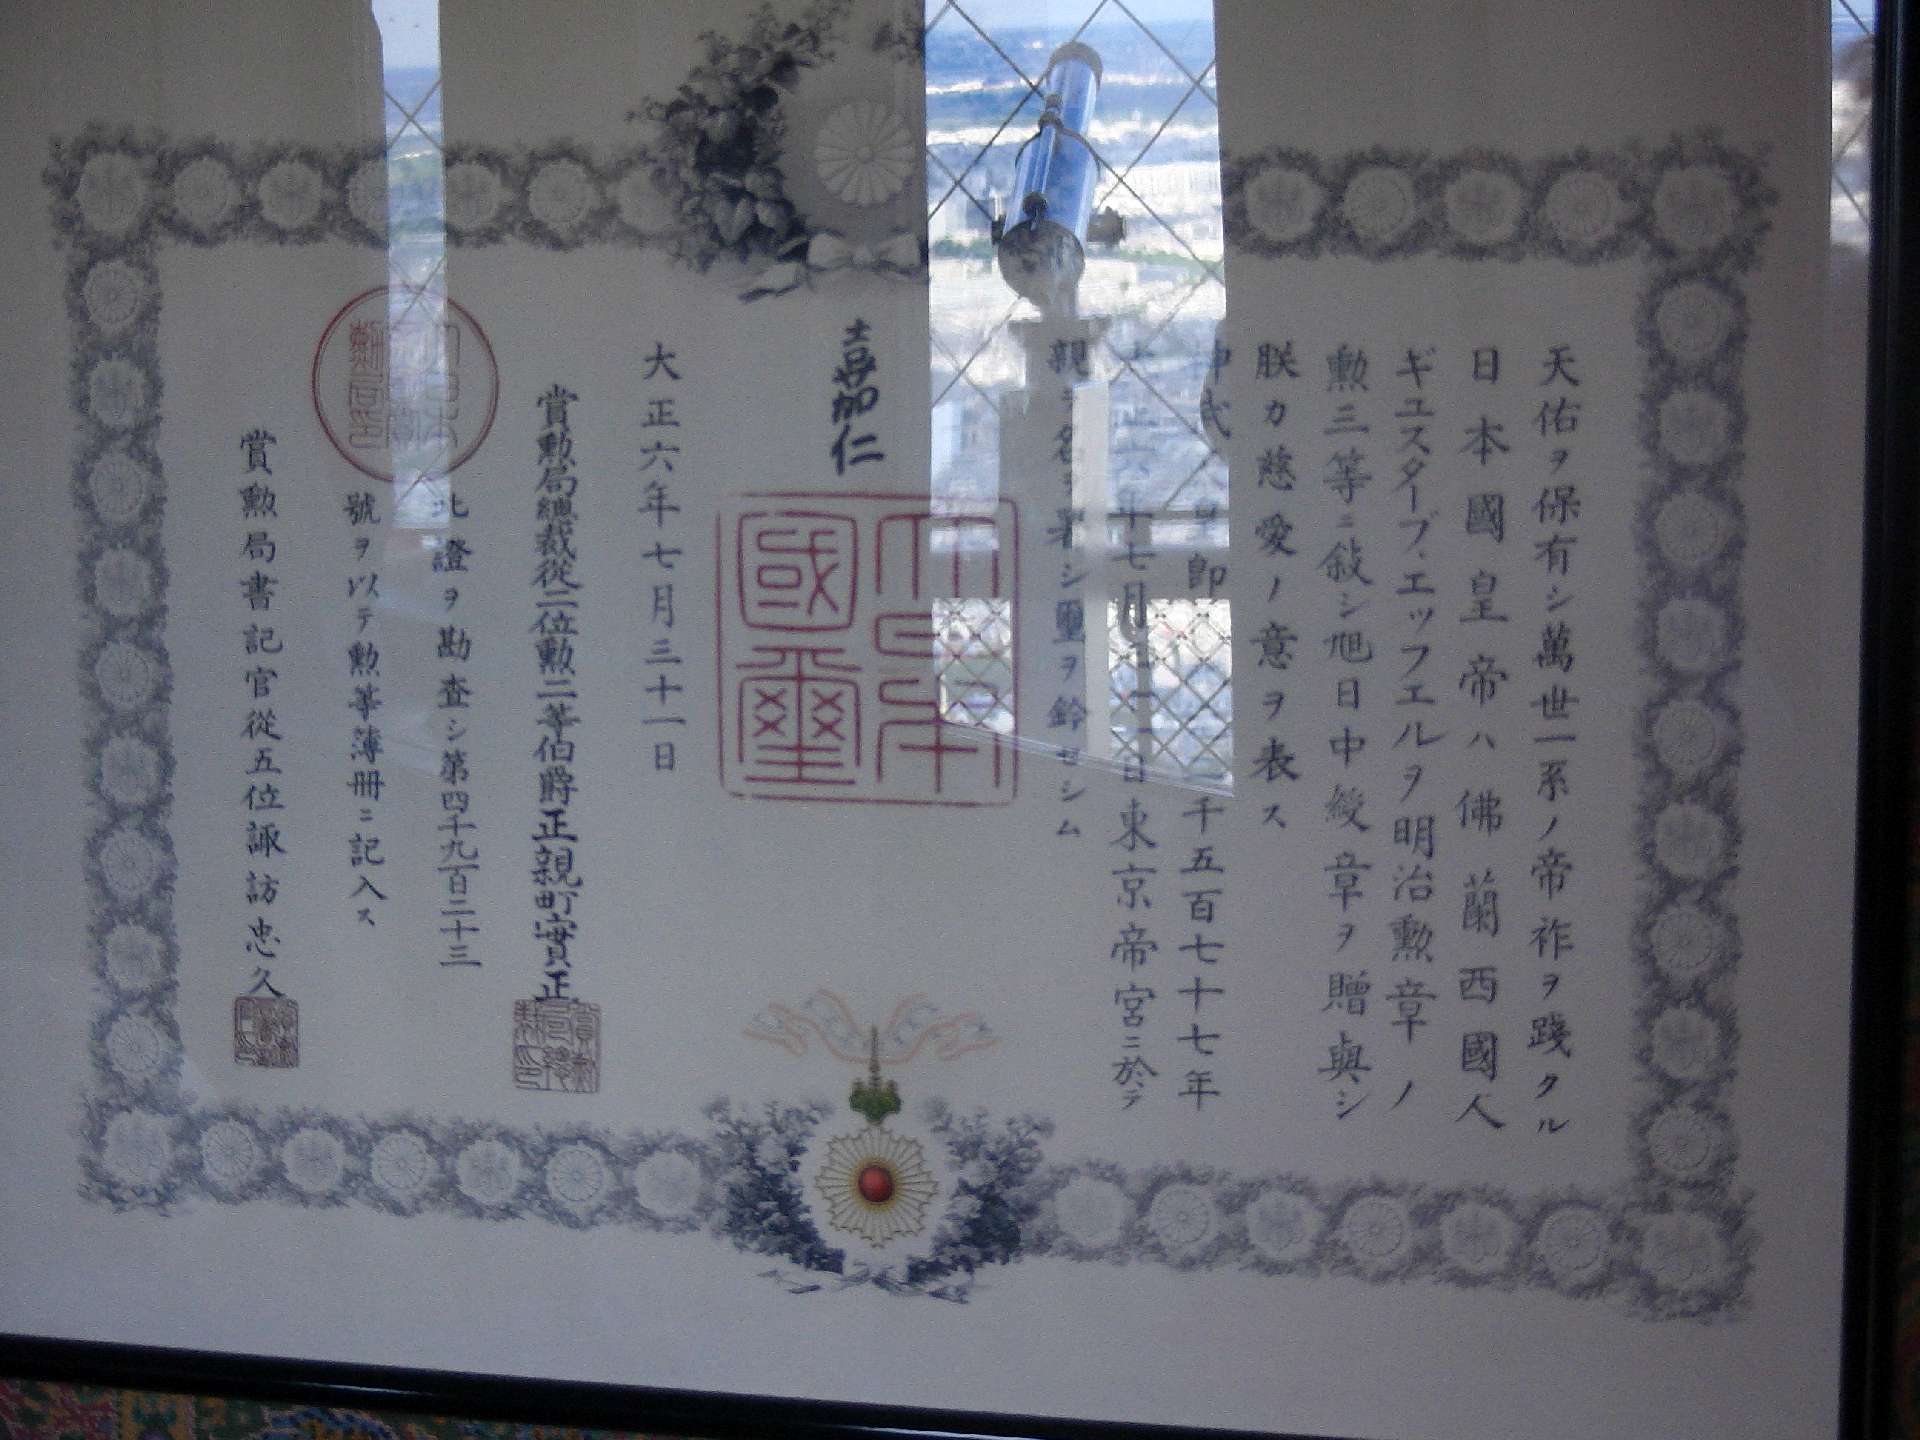 天佑ヲ保有シ萬世一系ノ帝祚ヲ踐タル
日本國皇帝ハ佛蘭西國人
ギュスターブ、エッフエルヲ明治勲章ノ
勲三等ニ敍シ旭日中綬章ヲ贈與シ
朕カ慈愛ノ意ヲ表ス
神武 皇即 千五百七十七年
六年七月三十一日東京帝宮ニ於テ
親ラ名ヲ署シ璽ヲ鈐セシム
嘉仁
大日本國璽
大正六年七月三十一日
賞勲局總裁從二位勲二等伯爵正親町實正
此證ヲ勘査シ第四千九百二十三
號ヲ以テ勲等簿冊ニ記入ス
賞勲局書記官從五位諏訪忠久